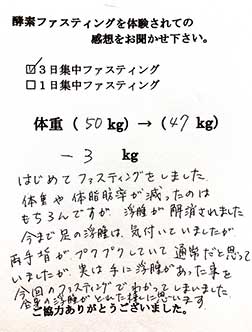 酵素ファスティングを体験されての
感想をお聞かせ下さい。
☑3日集中ファスティング
□1日集中ファスティング
体重（50kg）→（47kg）
－3 kg
はじめてファスティングをしました
体重や体脂肪率が減ったのは
もちろんですが 浮腫が解消されました
今まで足の浮腫は、気付いていましたが
両手指がプクプクしていて通常だと思って
いましたが、実は手に浮腫があった事を
今回のファスティングでわかってしまいました
の浮腫がとれた様に思います
ご協力ありがとうございました。